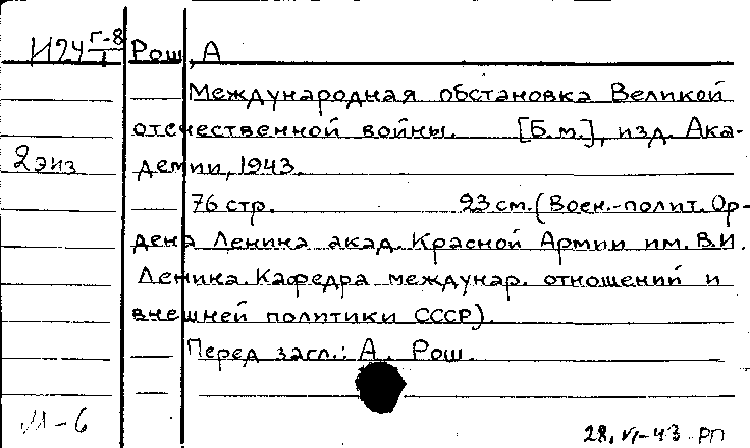 И24 Г-8/1 Рош, А
Международная обстановка Великой
отечественной войны. [Б.м.], изд. Ака-
2 экз демии, 1943.
76 стр. 23 см. (Воен.-полит. Ор-
дена Ленина акад. Красной Армии им. В.И.
Ленина. Кафедра междунар. отношений и
внешней политики СССР).
Перед загл.: А. Рош.
М-6
28.VI-43 РП